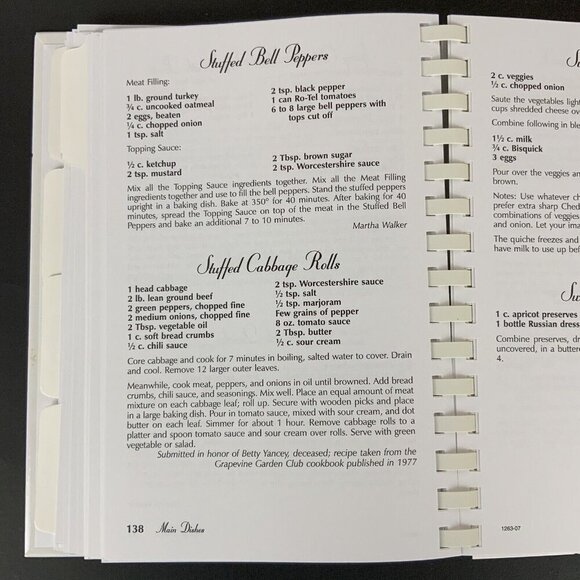 Stuffed Bell Peppers
Meat Filling:
1 lb. ground turkey
¾ c. uncooked oatmeal
2 eggs, beaten
¼ c. chopped onion
1 tsp. salt
2 tsp. black pepper
1 can Ro-Tel tomatoes
6 to 8 large bell peppers with
tops cut off
Topping Sauce:
½ c. ketchup
2 tsp. mustard
2 Tbsp. brown sugar
2 tsp. Worcestershire sauce
Mix all the Topping Sauce ingredients together. Mix all the Meat Filling
ingredients together and use to fill the bell peppers. Stand the stuffed peppers
upright in a baking dish. Bake at 350° for 40 minutes. After baking for 40
minutes, spread the Topping Sauce on top of the meat in the Stuffed Bell
Peppers and bake an additional 7 to 10 minutes.
Martha Walker
Stuffed Cabbage Rolls
1 head cabbage
2 lb. lean ground beef
2 green peppers, chopped fine
2 medium onions, chopped fine
2 Tbsp. vegetable oil
1 c. soft bread crumbs
½ c. chili sauce
2 tsp. Worcestershire sauce
½ tsp. salt
½ tsp. marjoram
Few grains of pepper
8 oz. tomato sauce
2 Tbsp. butter
½ c. sour cream
Core cabbage and cook for 7 minutes in boiling, salted water to cover. Drain
and cool. Remove 12 larger outer leaves.
Meanwhile, cook meat, peppers, and onions in oil until browned. Add bread
crumbs, chili sauce, and seasonings. Mix well. Place an equal amount of meat
mixture on each cabbage leaf; roll up. Secure with wooden picks and place
in a large baking dish. Pour in tomato sauce, mixed with sour cream, and dot
butter on each leaf. Simmer for about 1 hour. Remove cabbage rolls to a
platter and spoon tomato sauce and sour cream over rolls. Serve with green
vegetable or salad.
Submitted in honor of Betty Yancey, deceased; recipe taken from the
Grapevine Garden Club cookbook published in 1977
138 Main Dishes
2 c. veggies
½ c. chopped onion
Saute the vegetables
cups shredded cheese
Combine following in
1½ c. milk
¾ c. Bisquick
3 eggs
Pour over the veggies
brown.
Notes: Use whatever
prefer extra sharp
combinations of
and onion. Let your
The quiche freezes and
have milk to use up
1 c. apricot preserves
1 bottle Russian
Combine preserves,
uncovered, in a
4.
1263-07